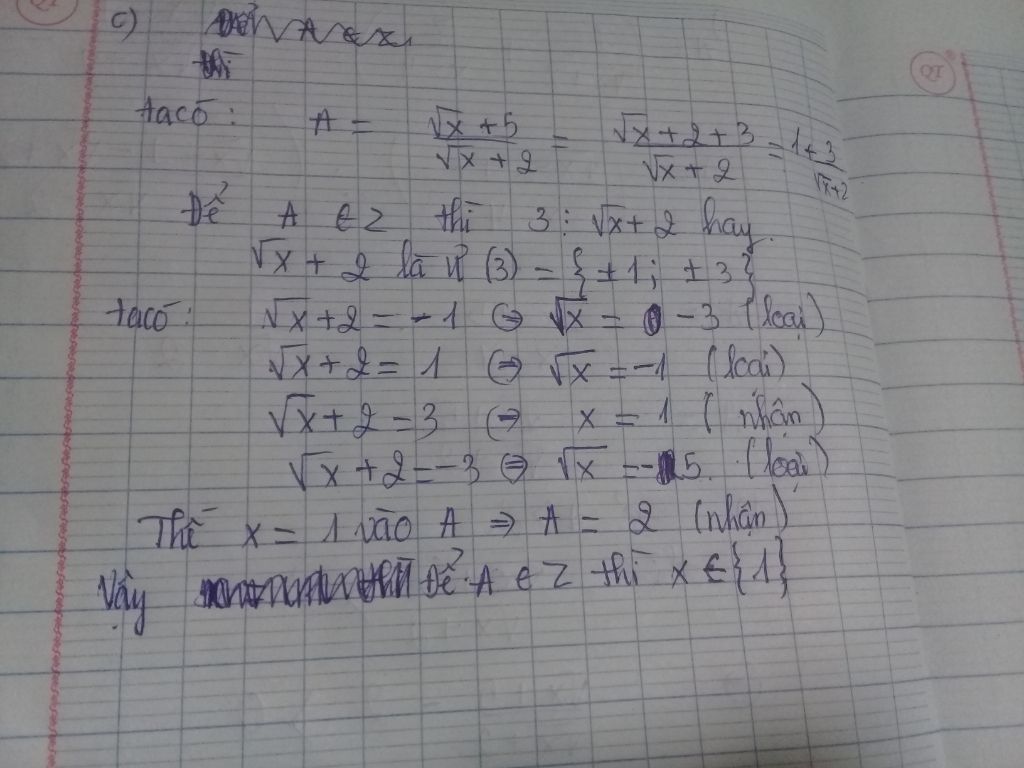 c) A ∈ Z
thì
ta có: A = (√x + 5)/(√x + 2) = (√x + 2 + 3)/(√x + 2) = 1 + 3/(√x + 2)
Để A ∈ Z thì 3 ⋮ √x + 2 hay
√x + 2 là Ư (3) = {±1; ±3}
ta có: √x + 2 = -1 ⇔ √x = -3 (loại)
√x + 2 = 1 ⇔ √x = -1 (loại)
√x + 2 = 3 ⇔ x = 1 (nhận)
√x + 2 = -3 ⇔ √x = -5 (loại)
Thế x = 1 vào A ⇒ A = 2 (nhận)
Vậy Để A ∈ Z thì x ∈ {1}